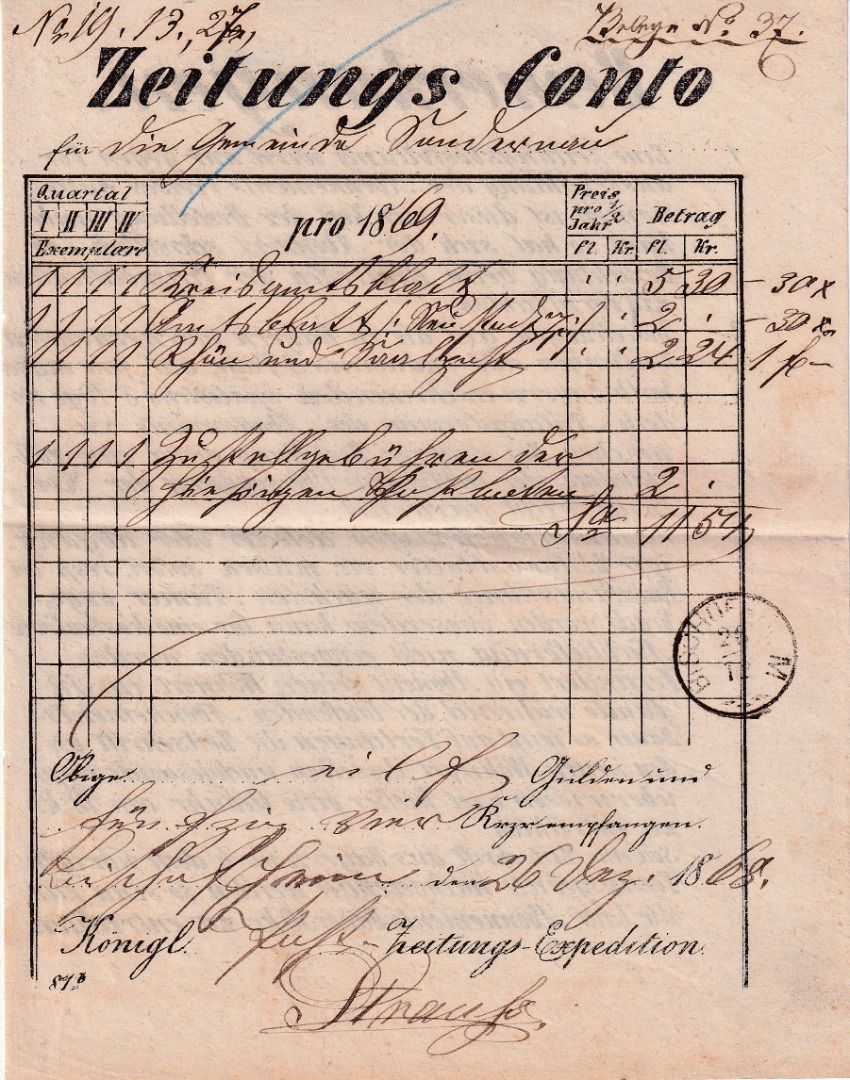 Nr. 19. 13. 27,
Belege No. 37.
Zeitungs Conto
für die Gemeinde Sondernau
Quartal
I II III IV
Exemplare
pro 1869.
Preis pro 1/2 Jahr
fl. Kr.
Betrag
fl. Kr.
1 1 1 1 Kreisamtsblatt 5 30 – 30 x
1 1 1 1 Amtsblatt (: Neustadt :) 2 . – 30 x
1 1 1 1 Rhön und Saalpost 2 24 1 f –
1 1 1 1 Zustellgebühren der
hiesigen Postboten 2 .
Sa 11 54
BISCHOFSHEIM
Obige eilf Gulden und
fünfzig vier Krzr empfangen.
Bischofsheim den 26 Dez. 1868.
Königl. Post-Zeitungs-Expedition.
87b
Strauß.